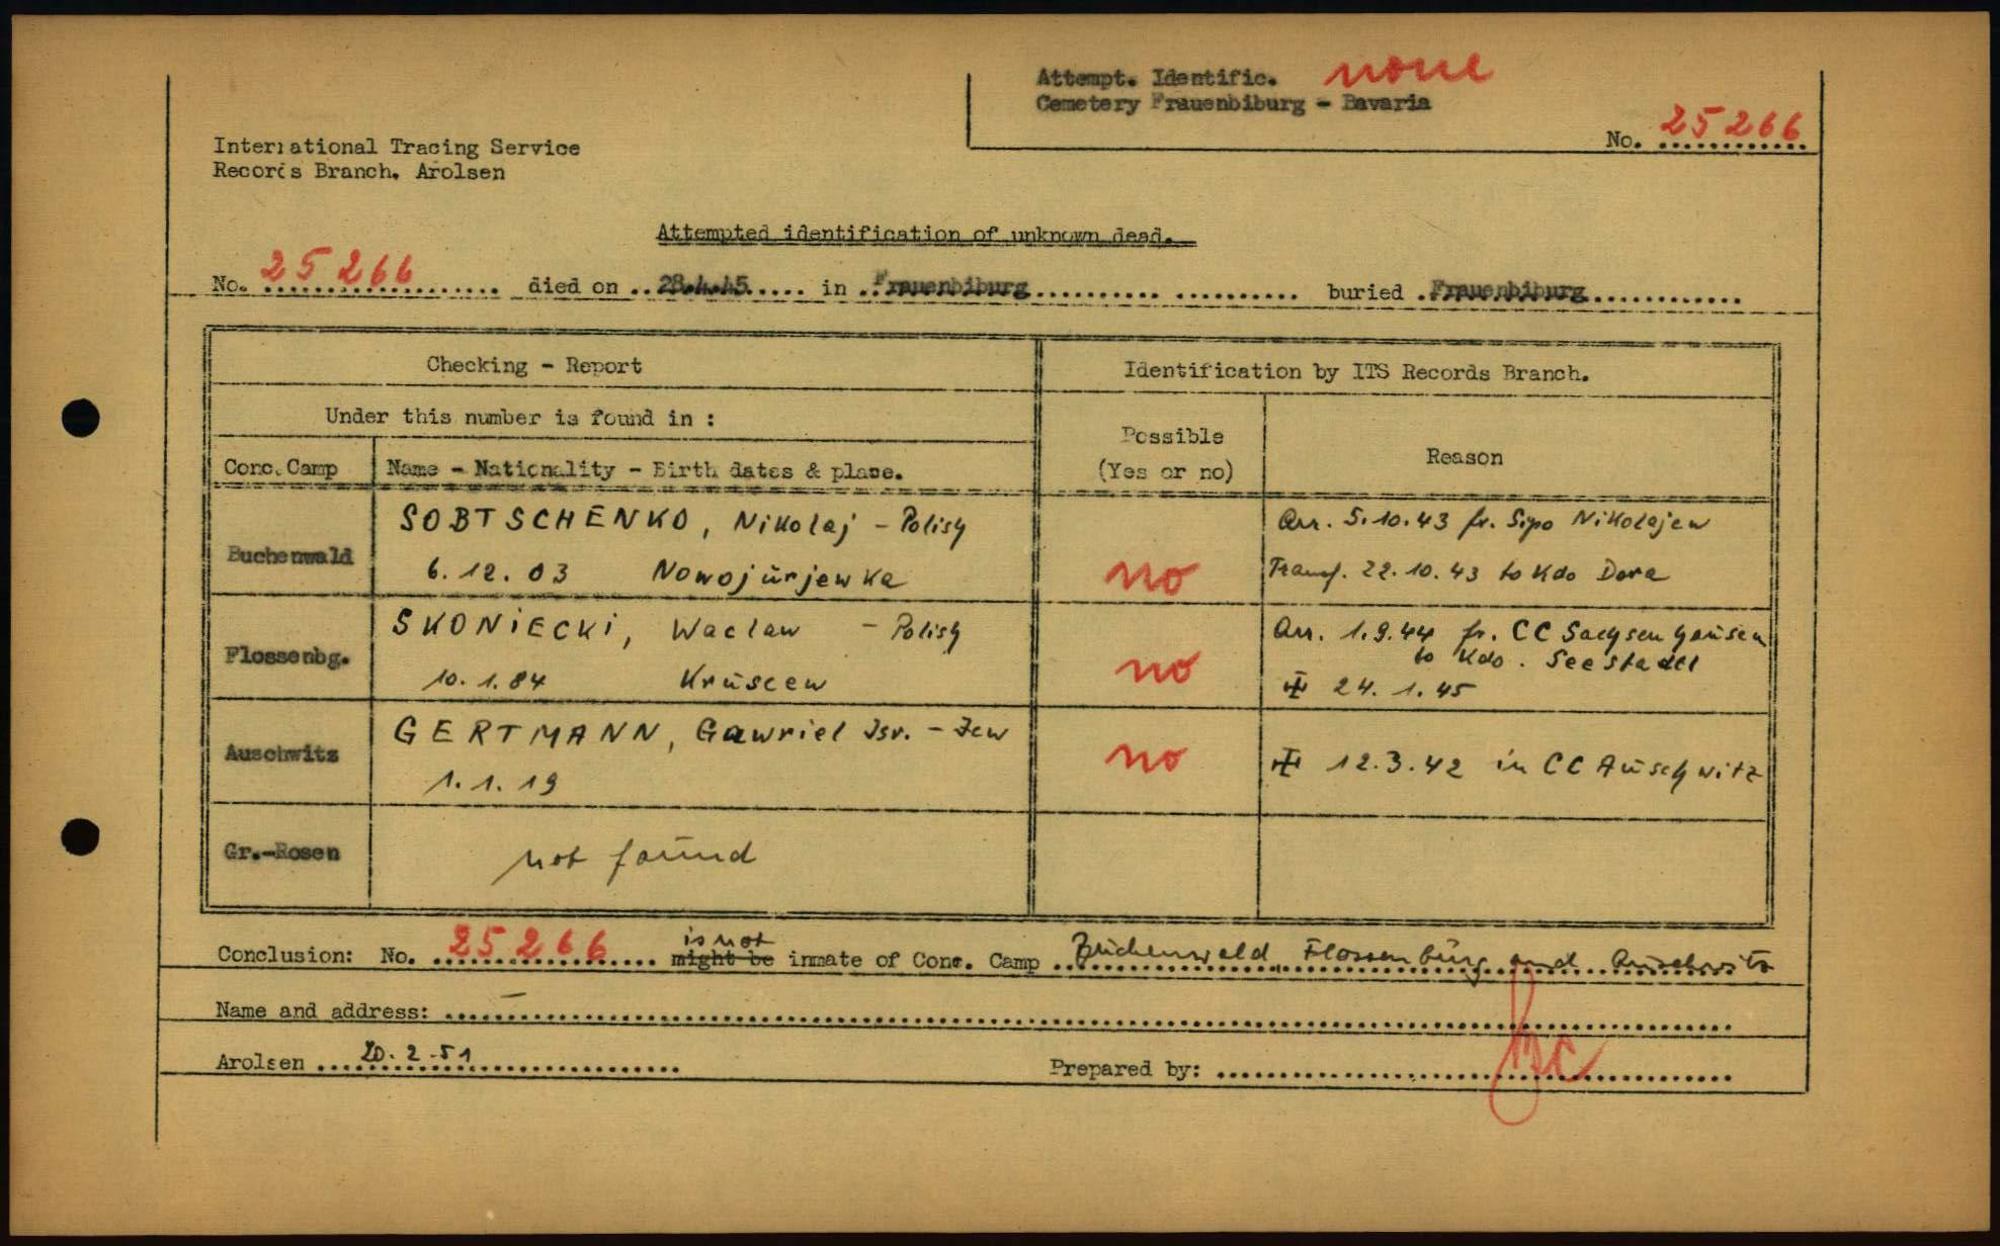 Attempt. Identific. none
Cemetery Frauenbiburg - Bavaria
No. 25266
International Tracing Service
Records Branch. Arolsen
Attempted identification of unknown dead.
No. 25266 died on 28.4.45 in Frauenbiburg buried Frauenbiburg
Checking - Report
Identification by ITS Records Branch.
Under this number is found in :
Possible
(Yes or no)
Reason
Conc. Camp Name - Nationality - Birth dates & place.
Buchenwald
SOBTSCHENKO, Nikolaj - Polish
6.12.03 Nowojürjewka
no
Arr. 5.10.43 fr. Sipo Nikolajew
Transf. 22.10.43 to Kdo Dora
Flossenbg.
SKONiECKi, Waclaw - Polish
10.1.84 Krūscew
no
Arr. 1.9.44 fr. CC Sachsenhausen
to Kdo. Seestadtl
24.1.45
Auschwitz
GERTMANN, Gawriel Isr. - Jew
1.1.19
no
12.3.42 in CC Auschwitz
Gr.-Rosen
not found
is not
Conclusion: No. 25266 might be inmate of Conc. Camp Buchenwald, Flossenbürg and Auschwitz
Name and address: -
Arolsen 20.2.51
Prepared by: